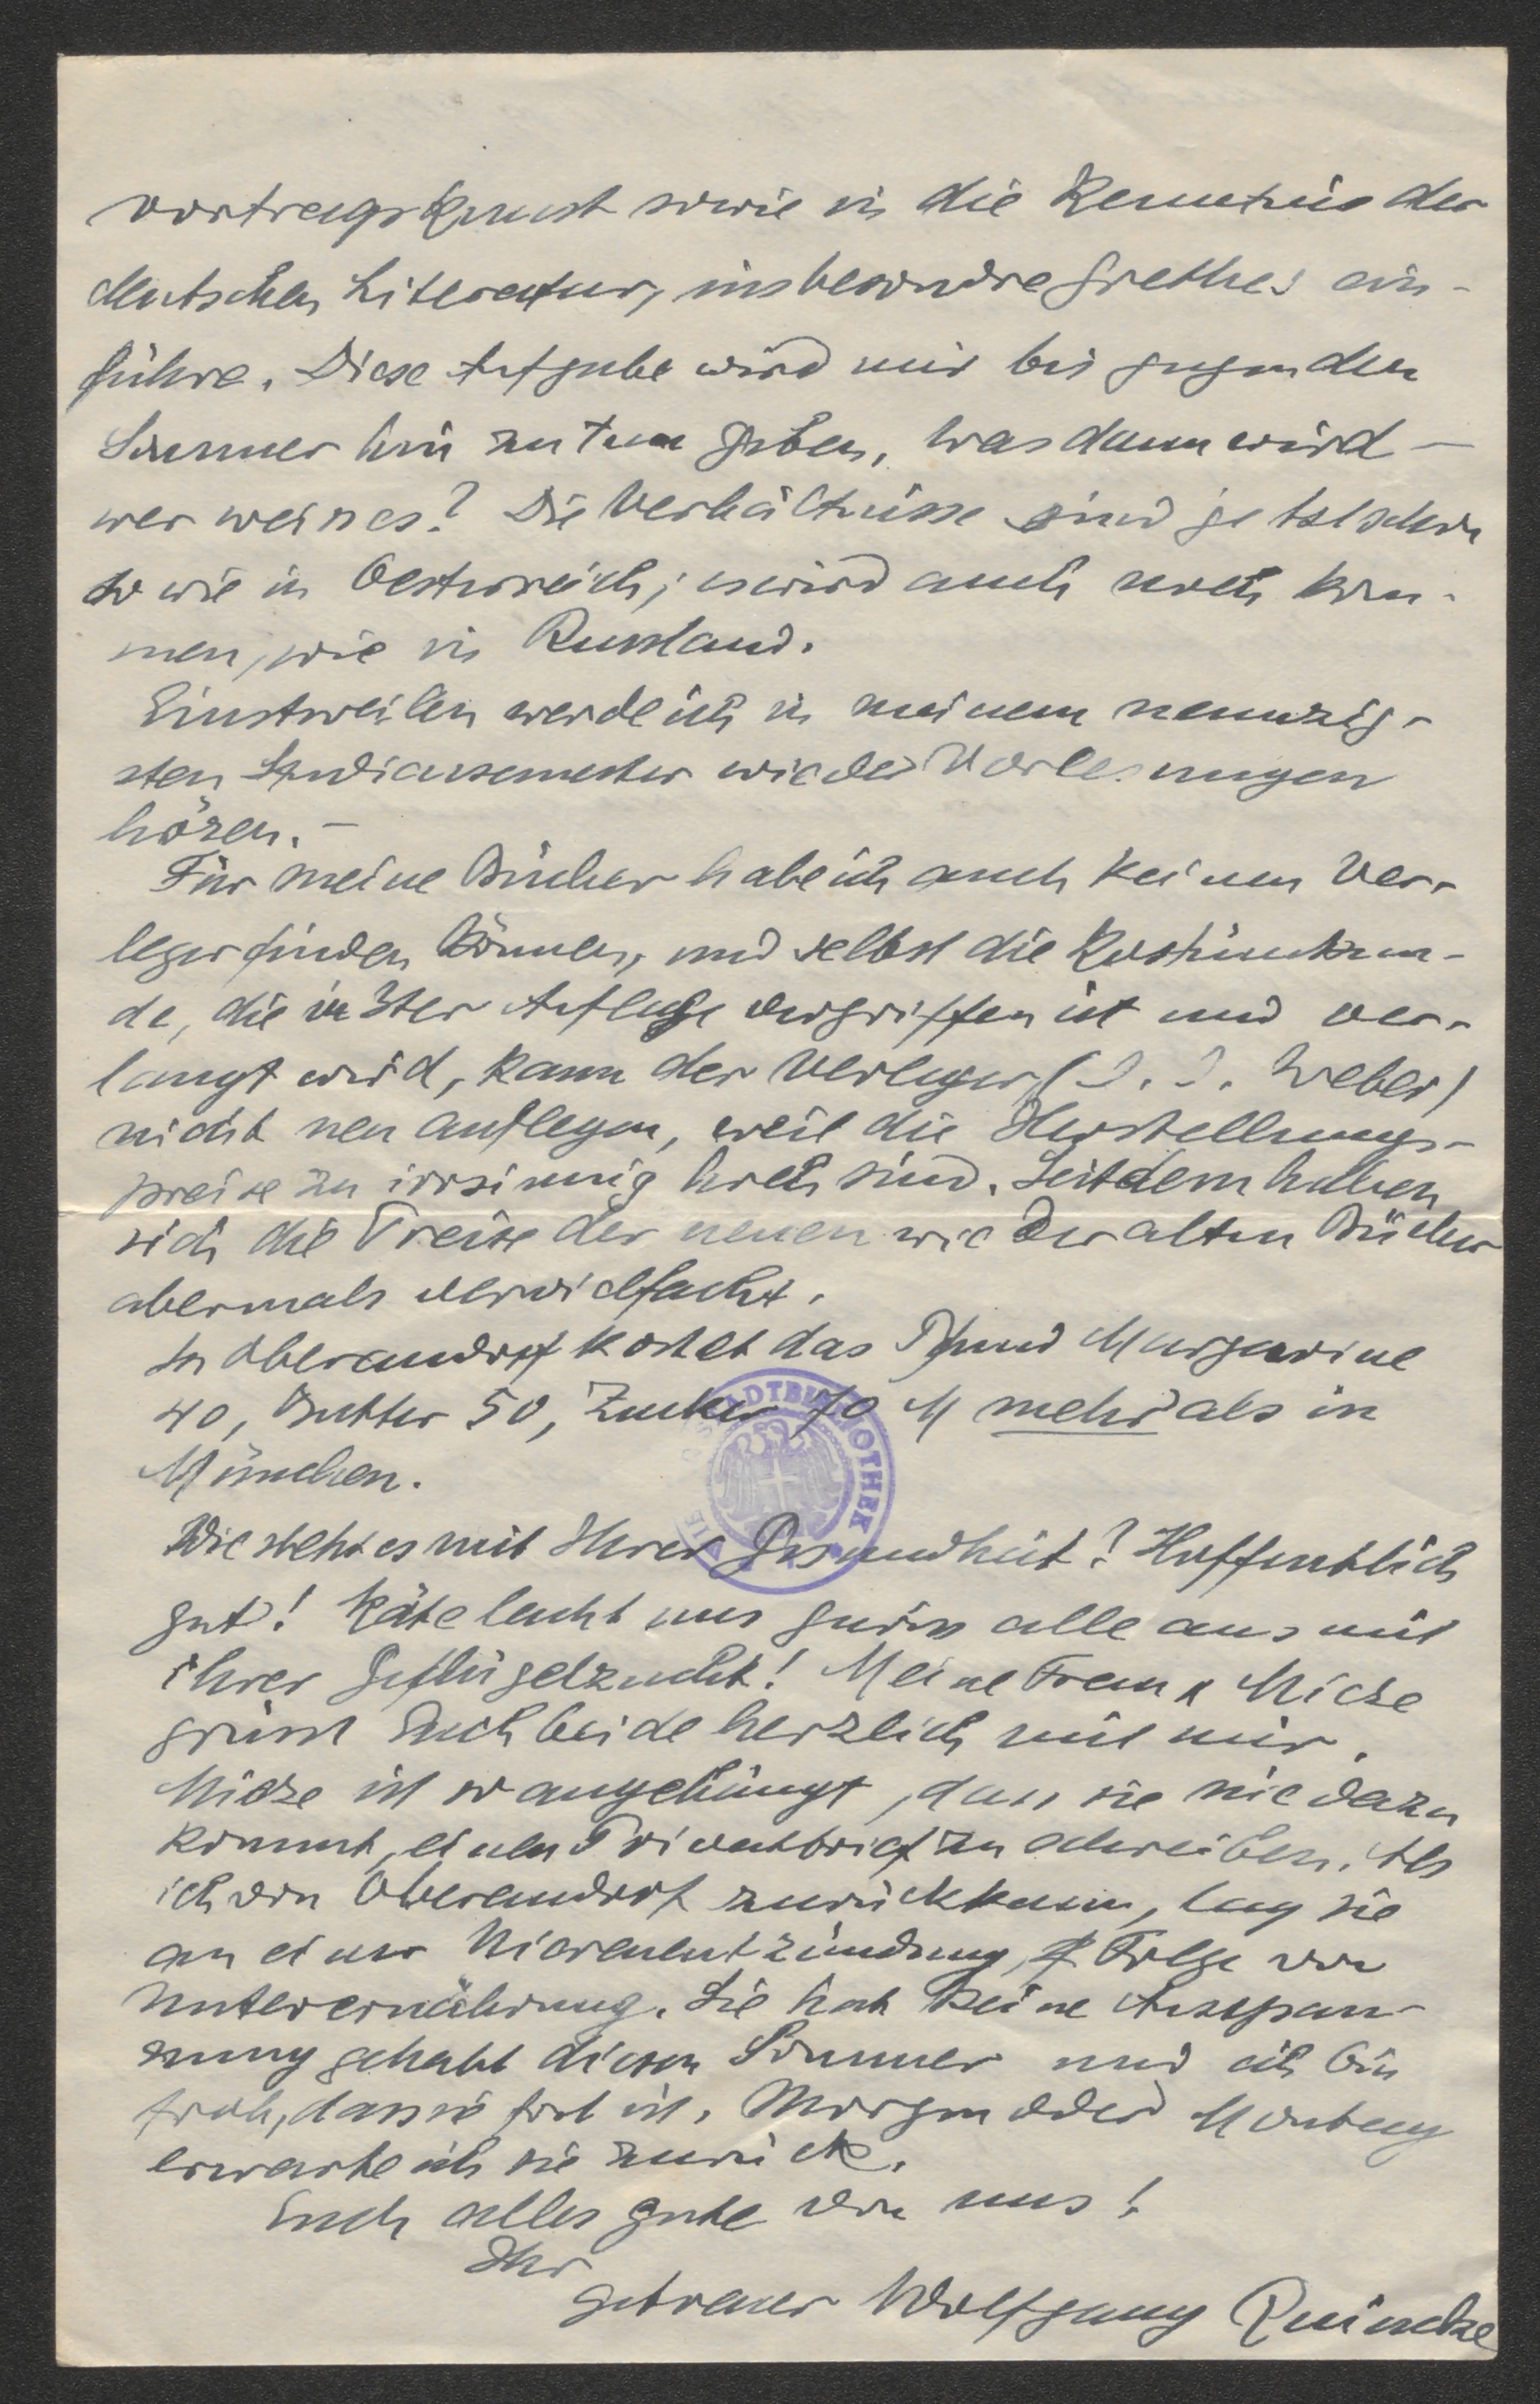 vortragskunst sowie in die Kenntnis der
deutschen Literatur, insbesondre Goethes ein-
führe. Diese Aufgabe wird mir bis gegen den
Sommer hin zu tun geben, was dann wird –
wer weiss es? Die Verhältnisse sind jetzt schon
so wie in Oesterreich; es wird auch noch kom-
men, wie in Russland.
Einstweilen werde ich in meinem neunzig-
sten Studiensemester wieder Vorlesungen
hören. –
Für meine Bücher habe ich auch keinen Ver-
leger finden können, und selbst die Kostümkun-
de, die in 3ter Auflage vergriffen ist und ver-
langt wird, kann der Verleger (J. J. Weber)
nicht neu auflegen, weil die Herstellungs-
preise zu irrsinnig hoch sind. Seitdem haben
sich die Preise der neuen wie der alten Bücher
abermals vervielfacht.
In Oberaudorf kostet das Pfund Margarine
40, Butter 50, Zucker 70 M mehr als in
München.
Wie steht es mit Ihrer Gesundheit? Hoffentlich
gut! Käte lacht uns gewiss alle aus mit
ihrer Geflügelzucht! Meine Frau & Mieze
grüsst Euch beide herzlich mit mir.
Mieze ist so angehängt, dass sie nie dazu
kommt, einen Privatbrief zu schreiben. Als
ich von Oberaudorf zurückkam, lag sie
an einer Nierenentzündung, Folge von
Unterernährung. Sie hat keine Ausspan-
nung gehabt diesen Sommer und ich bin
froh, dass sie fort ist. Morgen oder Montag
erwarte ich sie zurück.
Euch alles gute von uns!
Ihr
getreuer Wolfgang Quincke
STADTBIBLIOTHEK WIEN